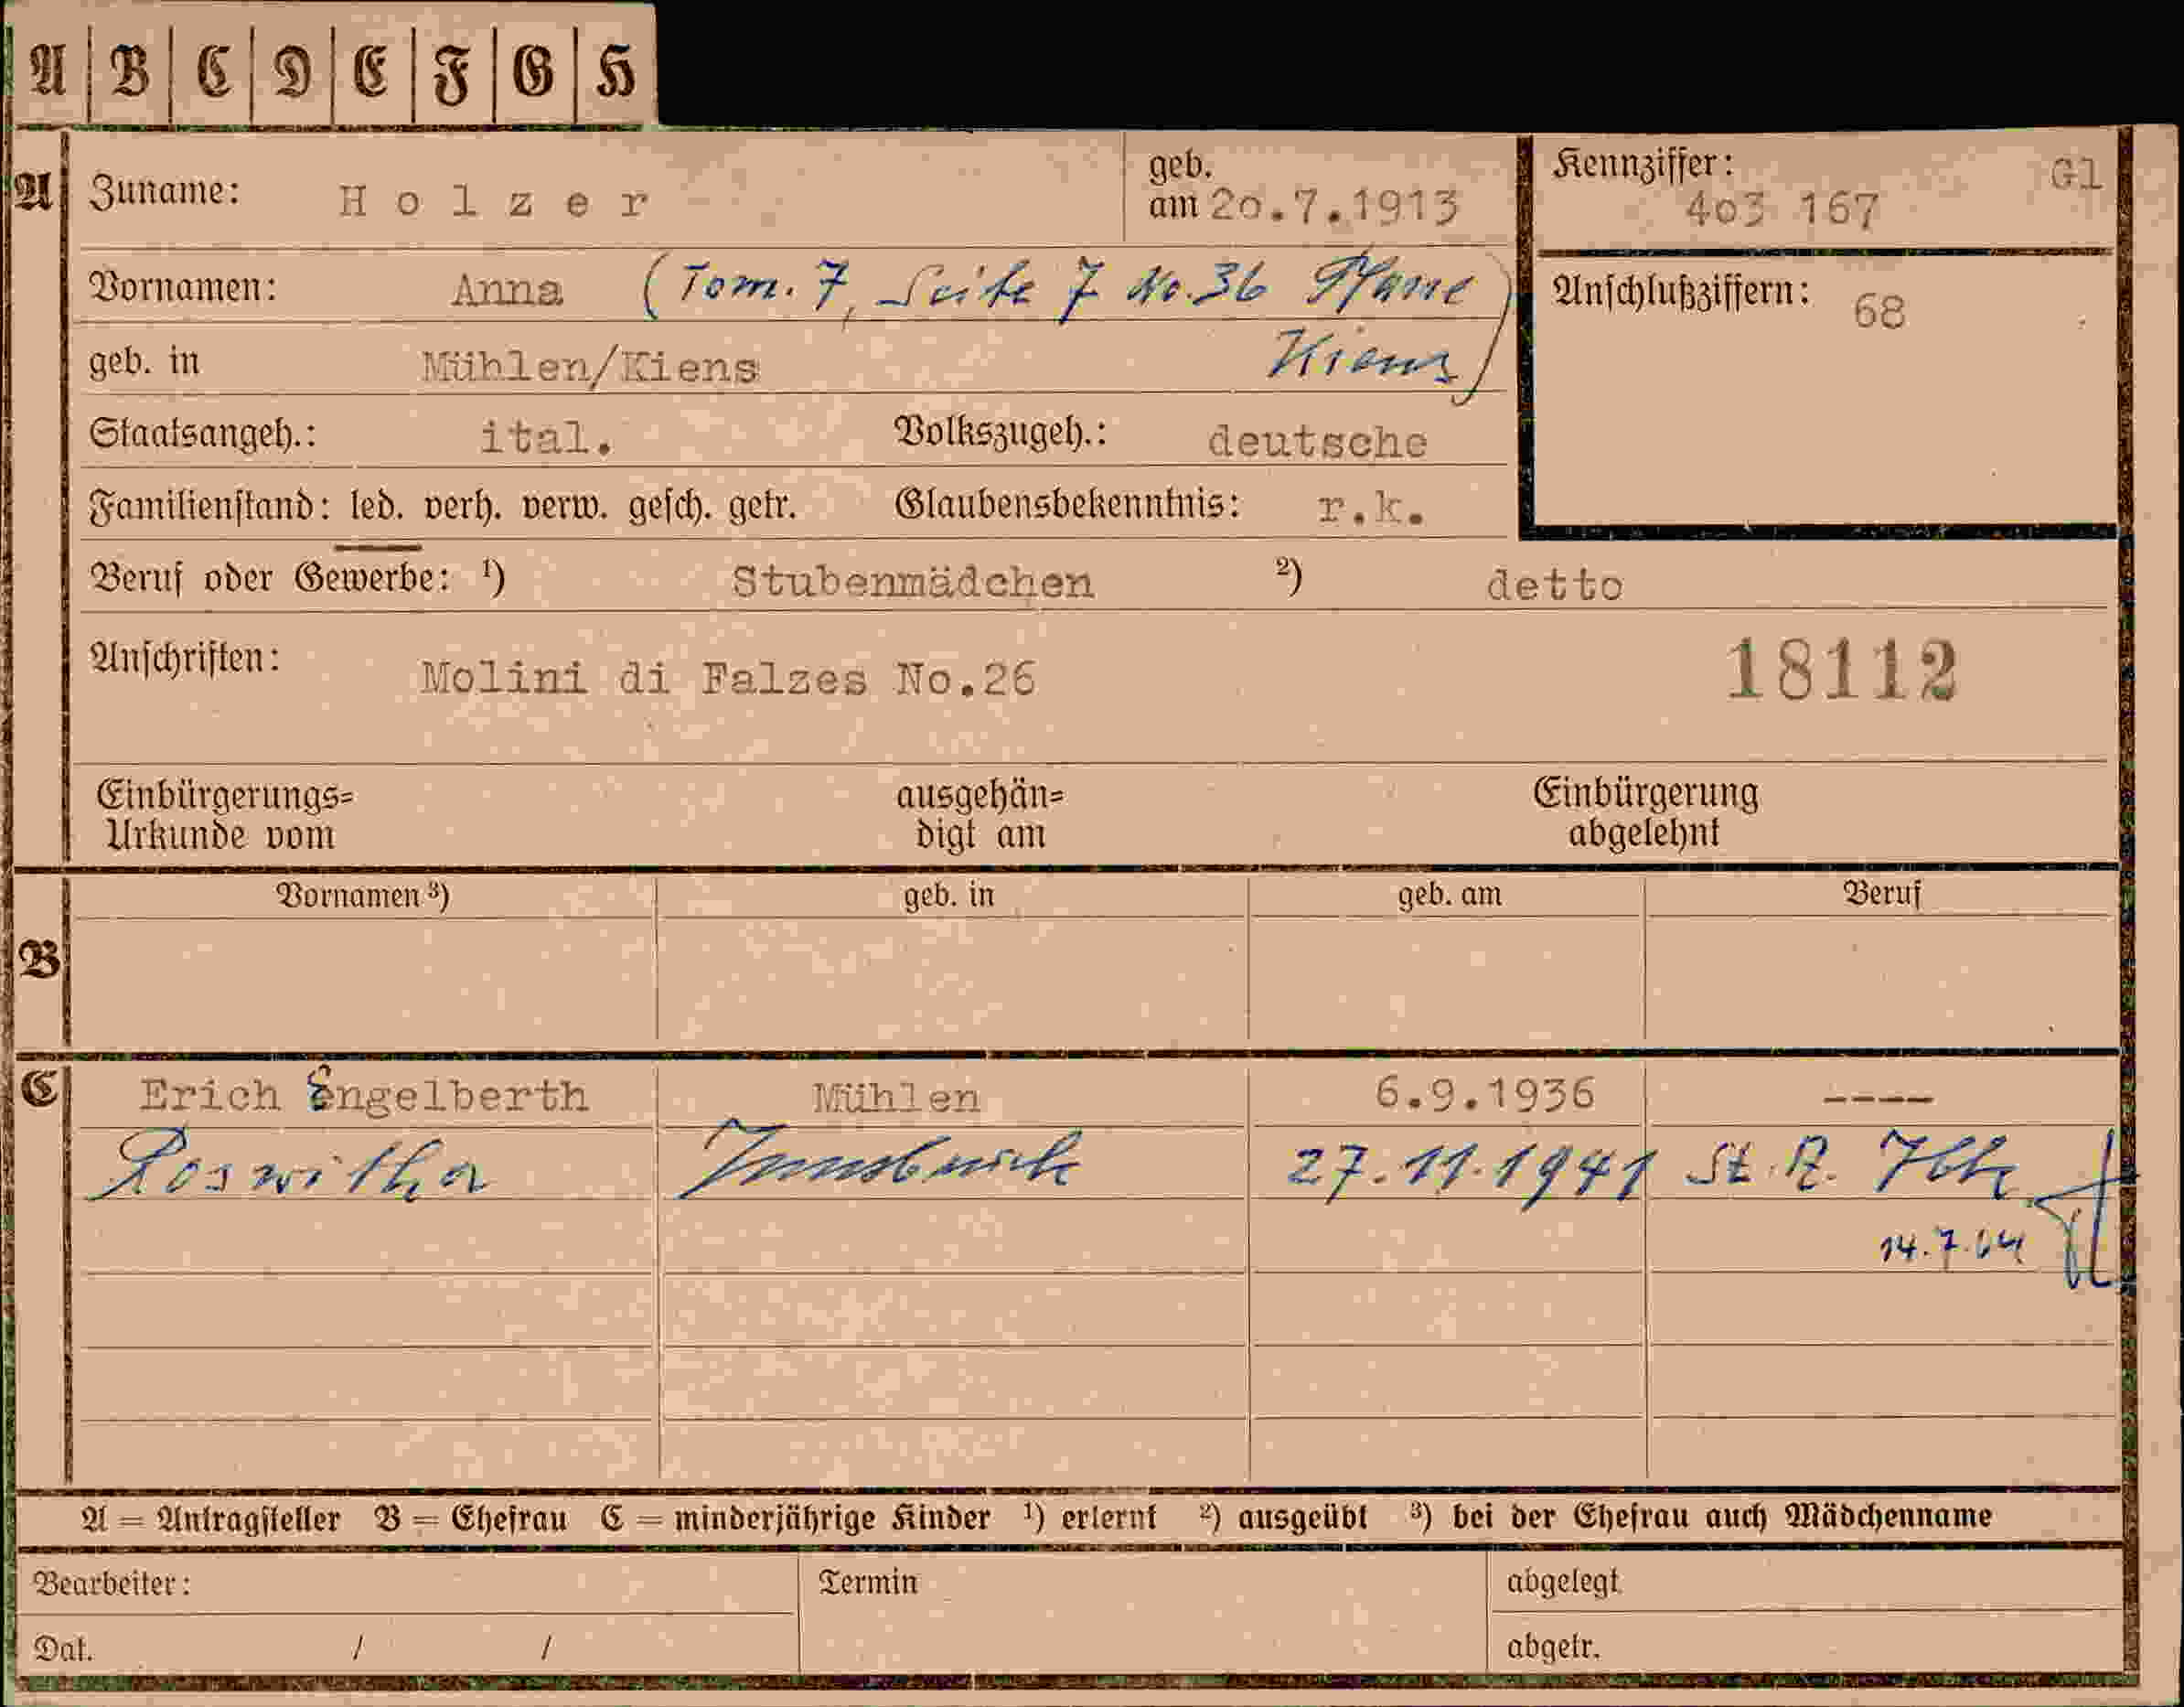 A B C D E F G H
A Zuname: Holzer geb. am 20.7.1913 Kennziffer: 403 167 Gl
Vornamen: Anna (Tom. 7, Seite 7 No. 36 Pfarre Kiens) Anschlußziffern: 68
geb. in Mühlen/Kiens
Staatsangeh.: ital. Volkszugeh.: deutsche
Familienstand: led. verh. verw. gesch. getr. Glaubensbekenntnis: r.k.
Beruf oder Gewerbe: 1) Stubenmädchen 2) detto
Anschriften: Molini di Falzes No.26 18112
Einbürgerungs= ausgehän= Einbürgerung
Urkunde vom digt am abgelehnt
Vornamen 3) geb. in geb. am Beruf
B
C Erich Engelberth Mühlen 6.9.1936 ----
Roswitha Innsbruck 27.11.1941 St. A.
14.7.64
A = Antragsteller B = Ehefrau C = minderjährige Kinder 1) erlernt 2) ausgeübt 3) bei der Ehefrau auch Mädchenname
Bearbeiter: Termin abgelegt
Dat. / / abgetr.